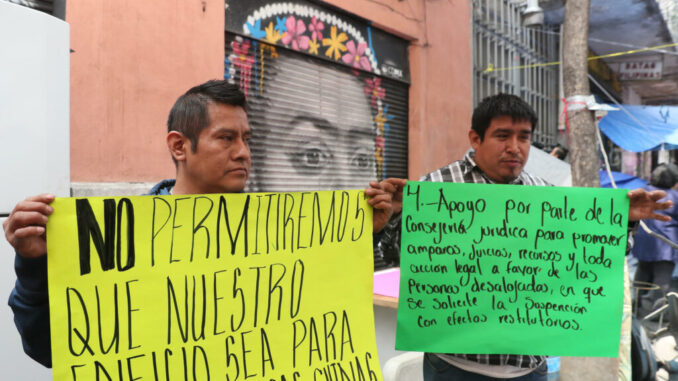 NO PERMITIREMOS
QUE NUESTRO
EDIFICIO SEA PARA
CHINAS
4.- Apoyo por parte de la
Consejería jurídica para promover
amparos, juicios, recursos y toda
accion legal a favor de las
Personas desalojadas, en que
se solicite la Suspención
con efectos restitutorios.
BATAS
FILIPINAS
CDMX